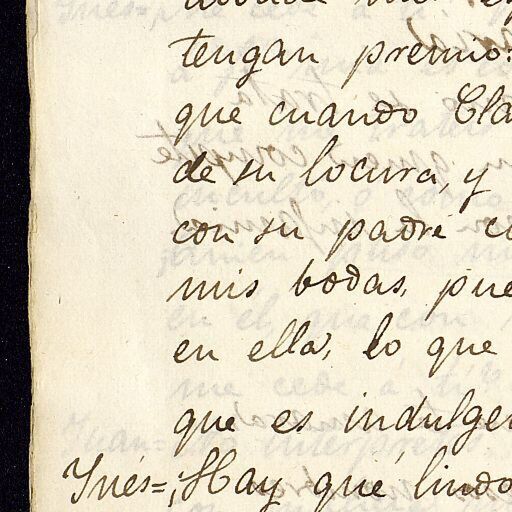 tengan premio:
que cuando Cla
de su locura, y
con su padre co
mis bodas, pue
en ella, lo que
que es indulgen
Ynes=¡Hay qué lindo